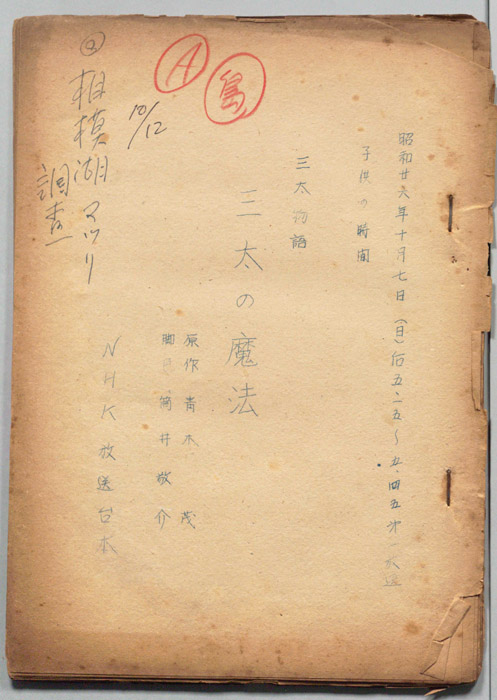 昭和廿六年十月七日(日)后五・二五~五・四五
子供の時間
三太物語
三太の魔法
原作 青木 茂
脚 筒井敬介
NHK放送台本
A
島
10/12
相模湖マツリ
調査